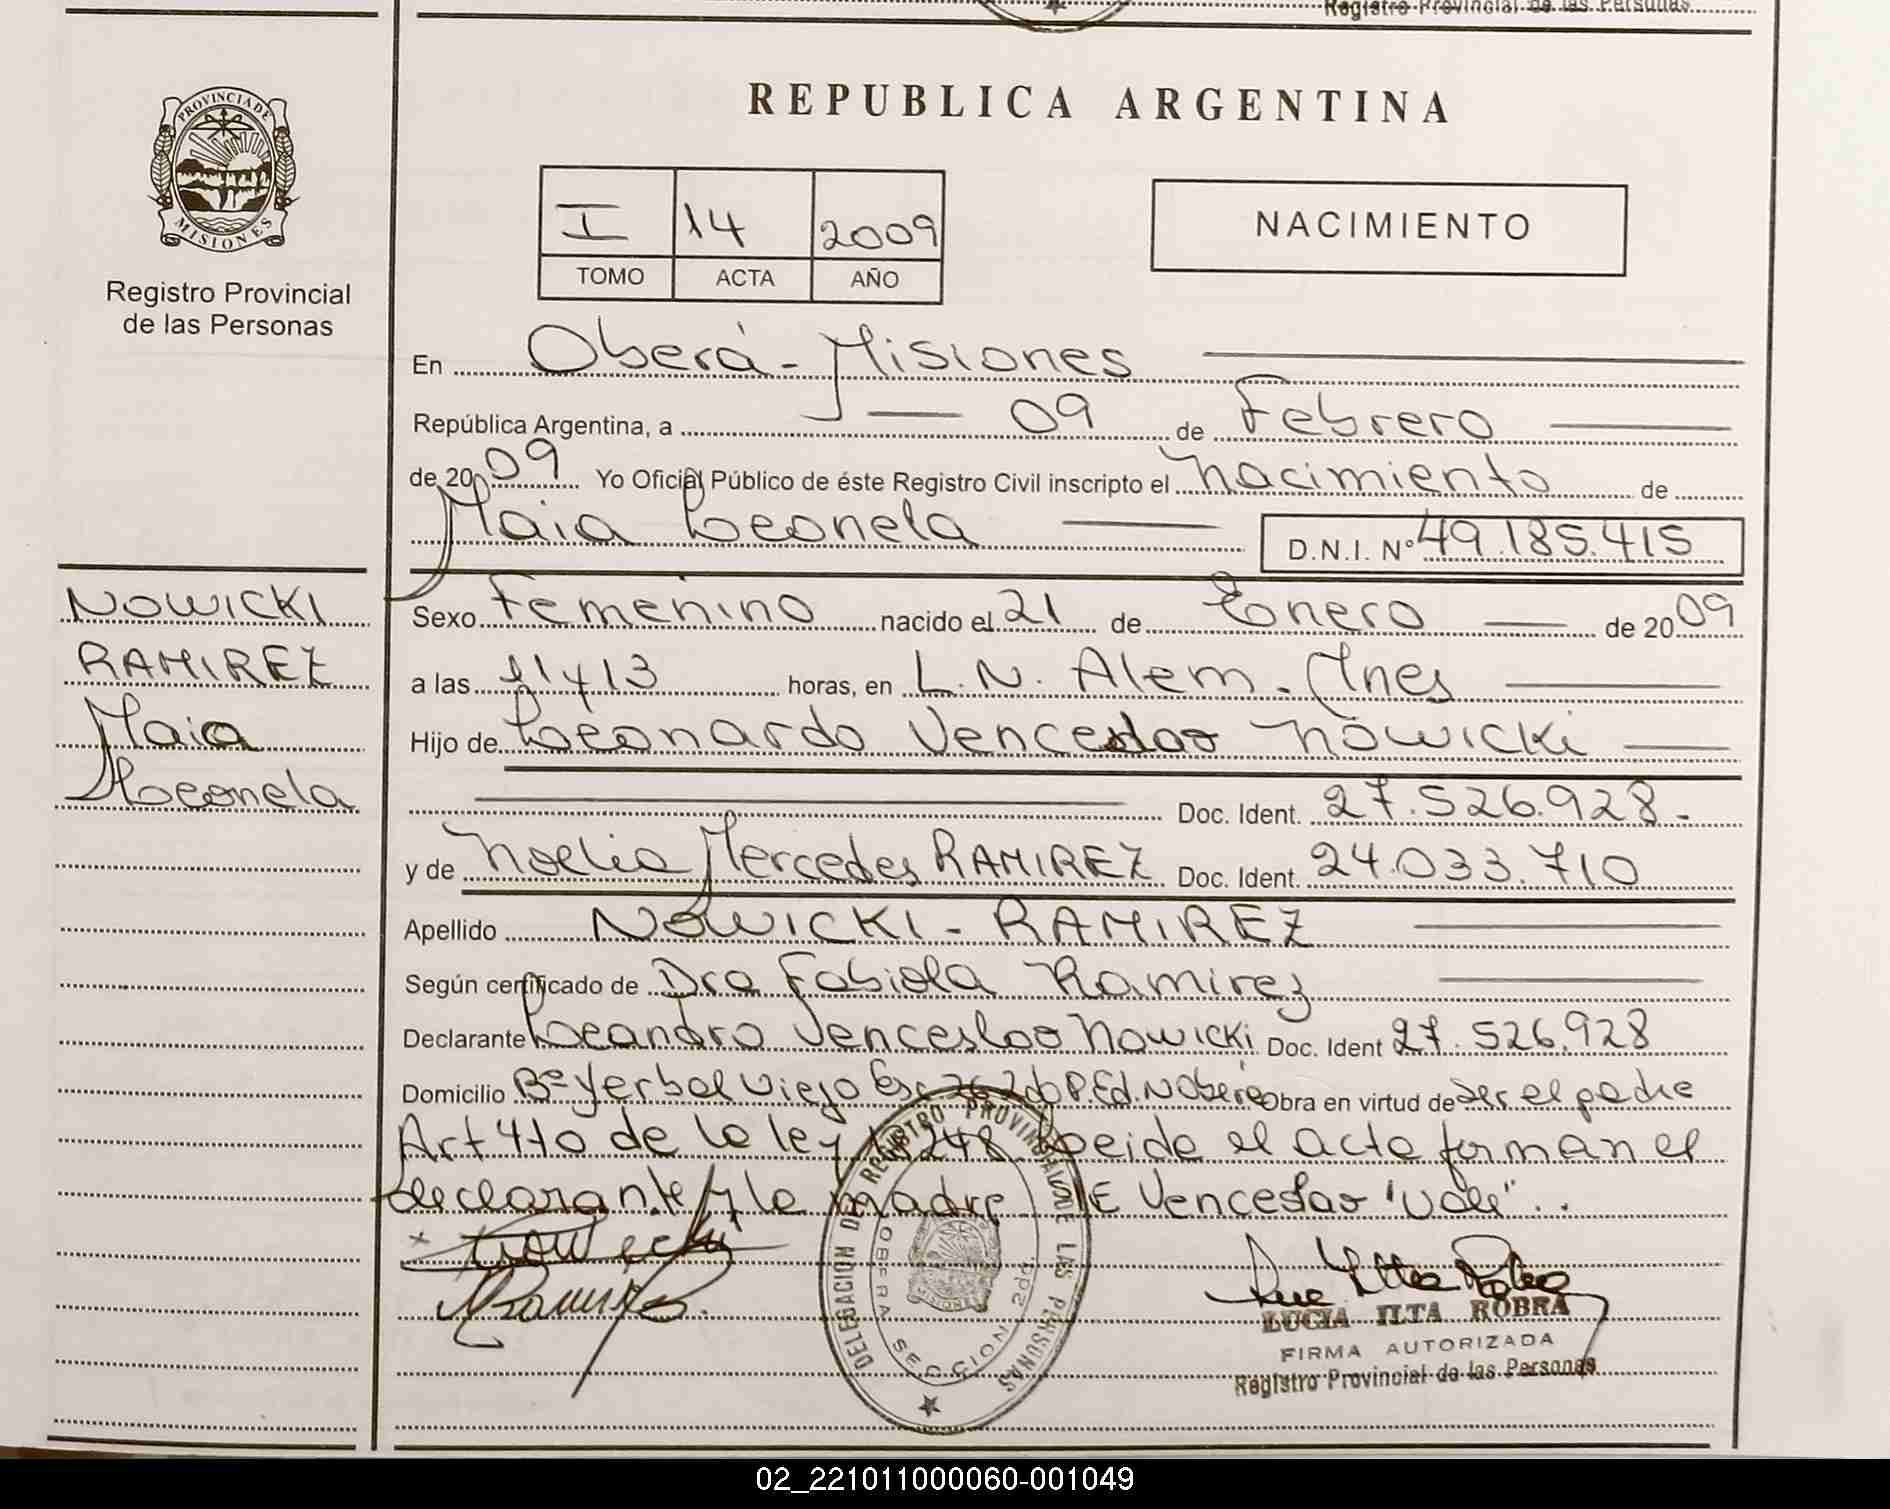 Registro Provincial de las Personas
PROVINCIA DE
MISIONES
Registro Provincial
de las Personas
REPUBLICA ARGENTINA
I 14 2009
TOMO ACTA AÑO
NACIMIENTO
En Oberá - Misiones
República Argentina, a 09 de Febrero
de 2009 Yo Oficial Público de éste Registro Civil inscripto el Nacimiento de
Maia Leonela D.N.I. Nº 49.185.415
NOWICKI
RAMIREZ
Maia
Leonela
Sexo Femenino nacido el 21 de Enero de 2009
a las 11 y 13 horas, en L.N. Alem.
Hijo de Leonardo Venceslao Nowicki
Doc. Ident. 27.526.928.
y de Noelia Mercedes RAMIREZ Doc. Ident. 24.033.710
Apellido NOWICKI - RAMIREZ
Según certificado de Dra Fabiola Ramirez
Declarante Leandro Venceslao Nowicki Doc. Ident 27.526.928
Domicilio Bº Yerbal Viejo Obra en virtud de ser el padre
Art 4to de la ley 248 Leida el acta forman el
declarante y la madre E Venceslao "Vale"..
DELEGACION DEL REGISTRO PROVINCIAL DE LAS PERSONAS
OBERA SECCION 2da.
MISIONES
LUCIA ILTA ROBRA
FIRMA AUTORIZADA
Registro Provincial de las Personas
02_221011000060-001049